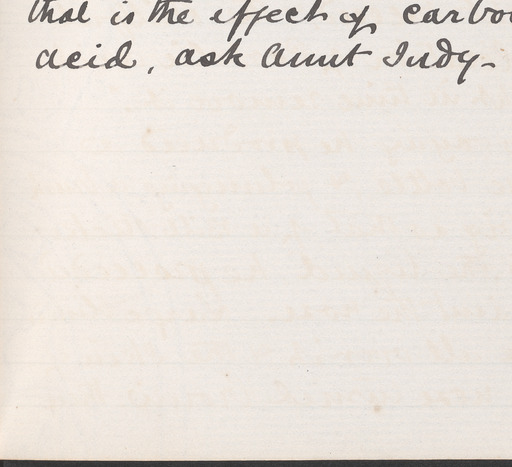 that is the effect of carbo
acid, ask Aunt Indy-